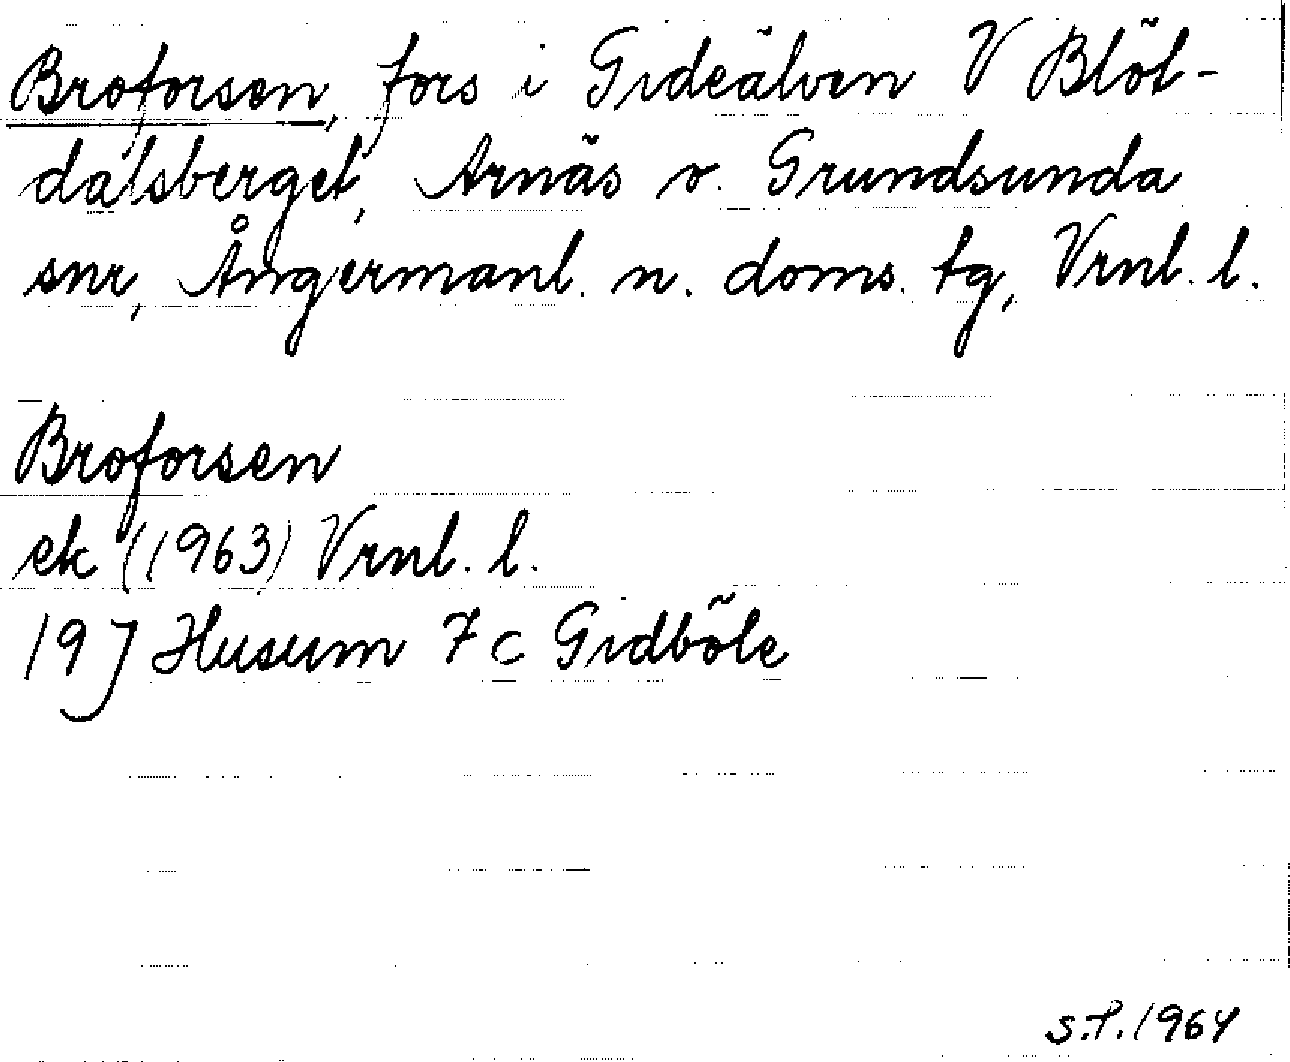 Broforsen, fors i Gideälven V Blöt-
dalsberget, Arnäs o. Grundsunda
snr, Ångermanl. n. doms. tg, Vrnl. l.
Broforsen
ek (1963) Vrnl. l.
19 J Husum 7 c Gidböle
S.P. 1964